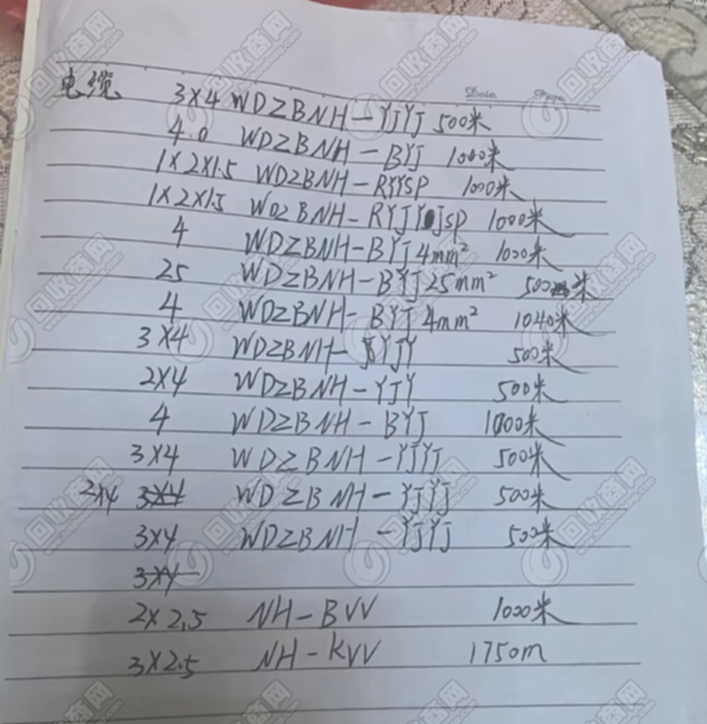 Date Page
电缆 3X4 WDZBNH-YJYJ 500米
4.0 WDZBNH-BYJ 1000米
1X2X1.5 WDZBNH-RYYSP 1000米
1X2X1.5 WDZBNH-RYJYJSP 1000米
4 WDZBNH-BYJ 4mm² 1000米
25 WDZBNH-BYJ 25mm² 500米
4 WDZBNH-BYJ 4mm² 1040米
3X4 WDZBNH-YJY 500米
2X4 WDZBNH-YJY 500米
4 WDZBNH-BYJ 1000米
3X4 WDZBNH-YJYJ 500米
2X4 3X4 WDZBNH-YJYJ 500米
3X4 WDZBNH-YJYJ 500米
3X4
2X2.5 NH-BVV 1000米
3X2.5 NH-KVV 1750m
回收商网